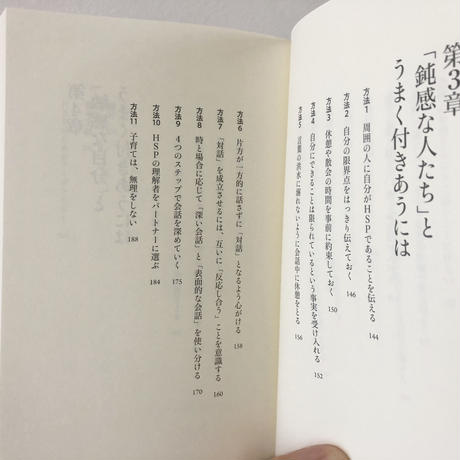 第3章
「鈍感な人たち」と
うまく付きあうには
方法1 周囲の人に自分がHSPであることを伝える 144
方法2 自分の限界点をはっきり伝えておく 146
方法3 休憩や散会の時間を事前に約束しておく 150
方法4 自分にできることは限られているという事実を受け入れる 152
方法5 言葉の洪水に溺れないように会話中に休憩をとる 156
方法6 片方が一方的に話さずに「対話」となるよう心がける 158
方法7 「対話」を成立させるには、互いに「反応し合う」ことを意識する 160
方法8 時と場合に応じて「深い会話」と「表面的な会話」を使い分ける 170
方法9 4つのステップで会話を深めていく 175
方法10 HSPの理解者をパートナーに選ぶ 184
方法11 子育ては、無理をしない 188